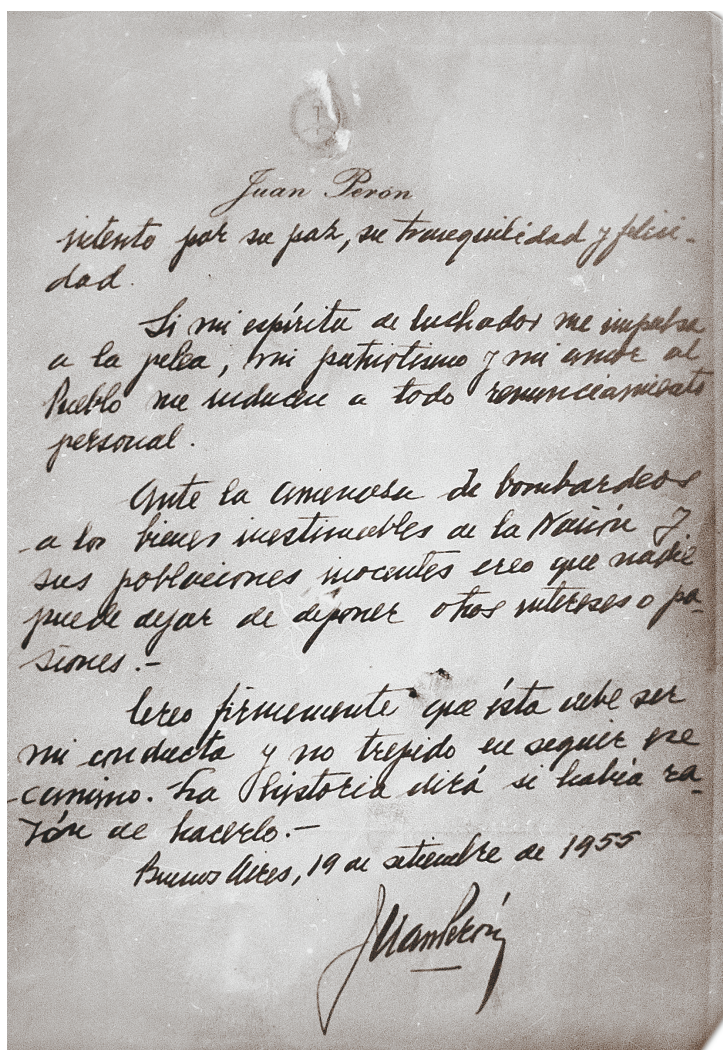 Juan Perón
intento por su paz, su tranquilidad y felici-
dad.
Si mi espíritu de luchador me impulsa
a la pelea, mi patriotismo y mi amor al
Pueblo me inducen a todo renunciamiento
personal.
Ante la amenaza de bombardeos
a los bienes inestimables de la Nación y
sus poblaciones inocentes creo que nadie
puede dejar de deponer otros intereses o pa-
siones.-
Creo firmemente que ésta debe ser
mi conducta y no trepido en seguir ese
camino. La historia dirá si había ra-
zón de hacerlo.-
Buenos Aires, 19 de setiembre de 1955
Juan Perón